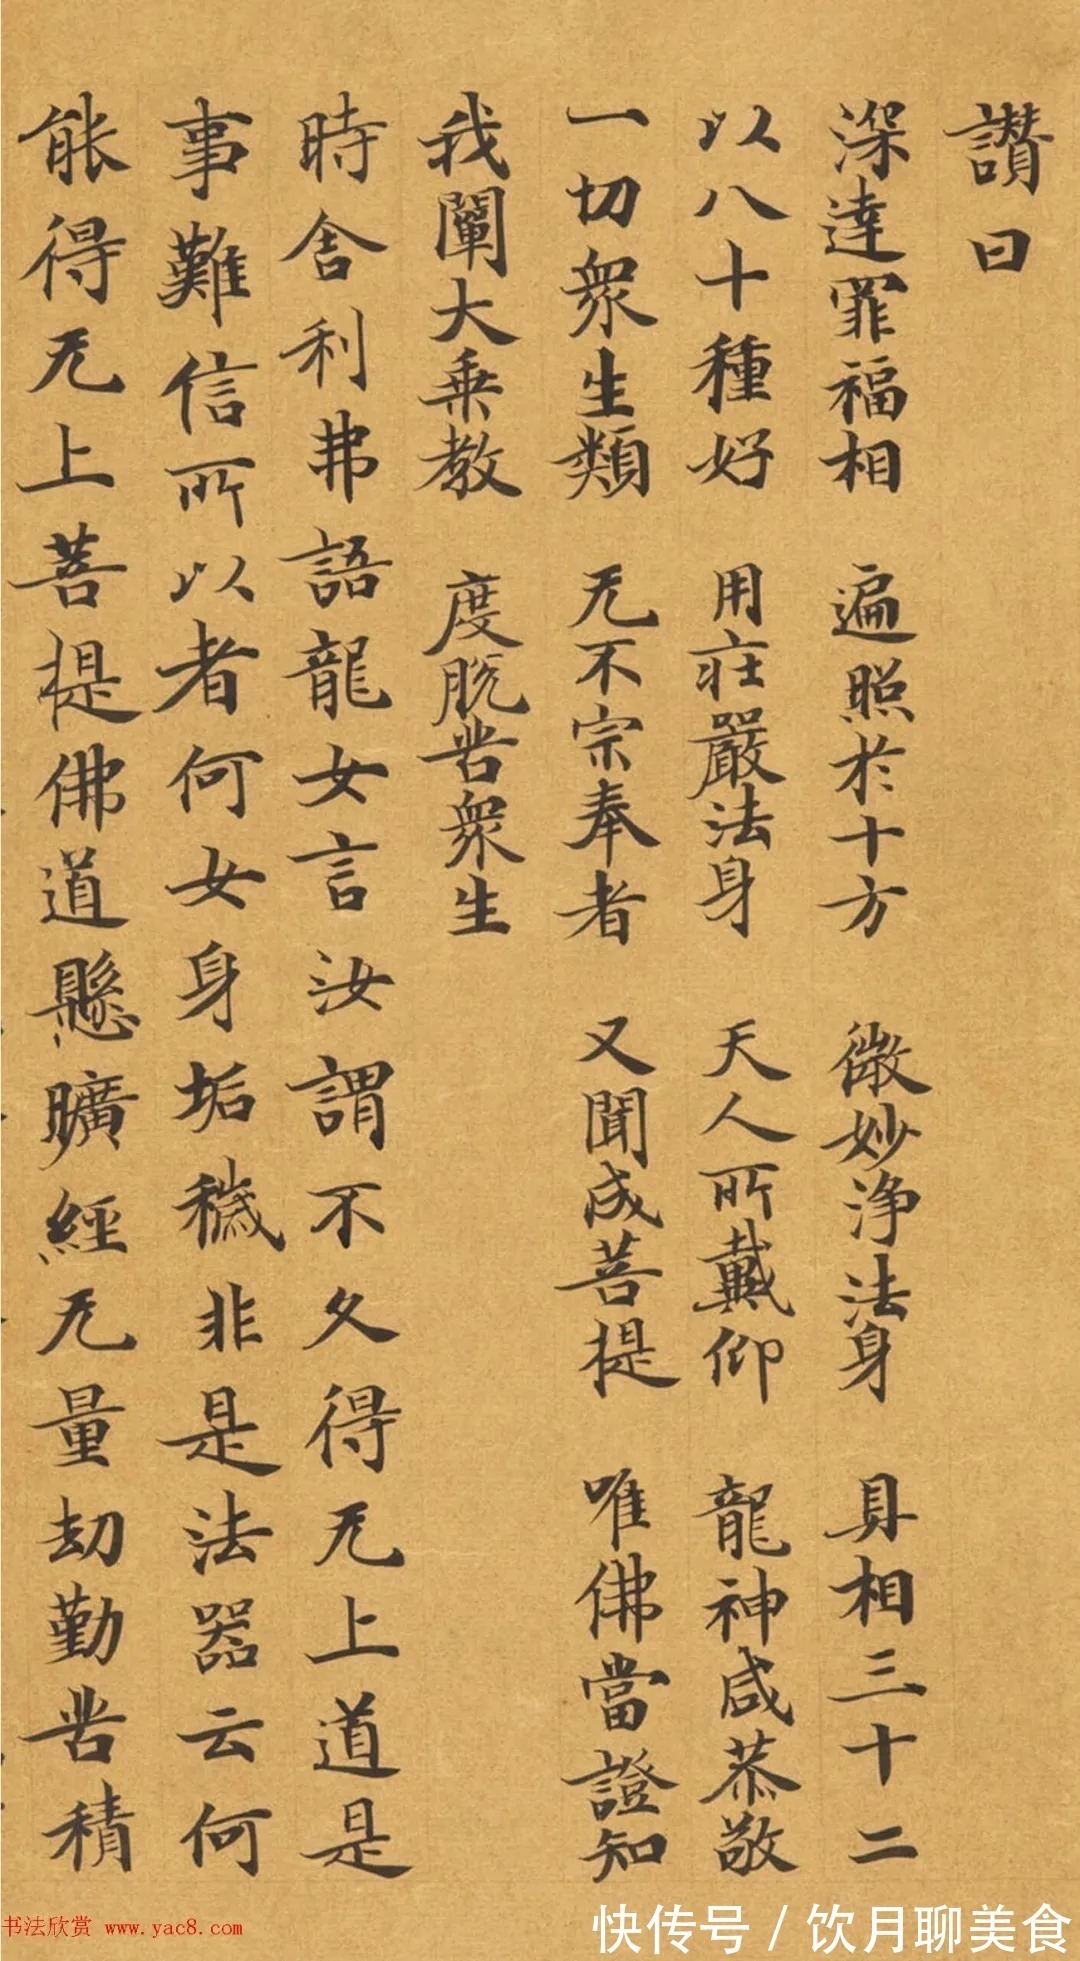 讃曰
深達罪福相 遍照於十方 微妙淨法身 具相三十二
以八十種好 用莊嚴法身 天人所戴仰 龍神咸恭敬
一切衆生類 无不宗奉者 又聞成菩提 唯佛當證知
我闡大乗教 度脱苦衆生
時舎利弗語龍女言汝謂不久得无上道是
事難信所以者何女身垢穢非是法器云何
能得无上菩提佛道懸曠經无量劫勤苦積
书法欣赏 www.yac8.com
快传号 / 饮月聊美食